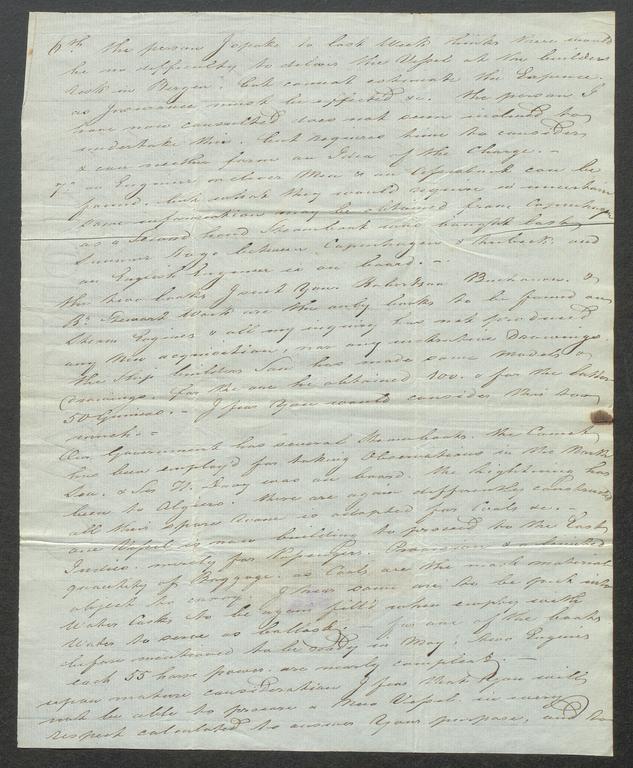 6th the person I spoke to last Week thinks there would
be no difficulty to deliver the Vessel at the builders
risk in Bergen, but cannot estimate the Expence
as Insurance must be effected &c. the person I
have now consulted does not seem inclined to
undertake this, but requires time to consider
& can neither form an Idea of the Charge. -
7th an Engineer or clever Man & an Apprentice can be
found, but what they would require is uncertain
some information may be obtained from Copenhagen
as a Second hand Steamboat was bought last
Summer to go between Copenhagen & Lubeck and
an English Engineer is on board. -
the two books I sent You Robertson Buchanan &
Stewart Work are the only books to be found on
Steam Engines & all my inquiry has not produced
any New acquisition, nor any instructive Drawings.
the Ship builders Son has made some Models &
Drawings, for the one he obtained 100. & for the latter
50 Guineas. - I fear You would consider this too
much. -
Our Government has several Steamboats, the Comet
has been employ'd for taking Observations in the North
Sea, & Sir H. Davy was on board. the lightening has
been to Algiers. these are again differently constructed
all their spare room is adapted for Coals &c. -
one Vessel is now building to proceed to the East
Indies, merely for Passengers, Provision & a limited
quantity of Baggage, as Coals are the most material
object to carry, I hear some are to be put into
Water Casks to be again fill'd when empty with
Water to serve as ballast. - for one of the boats
before mentioned to be ready in May, two Engines
each 55 horse power, are nearly compleat -
upon mature consideration I fear that You will
not be able to procure a New Vessel in every
respect calculated to answer Your purpose, and to